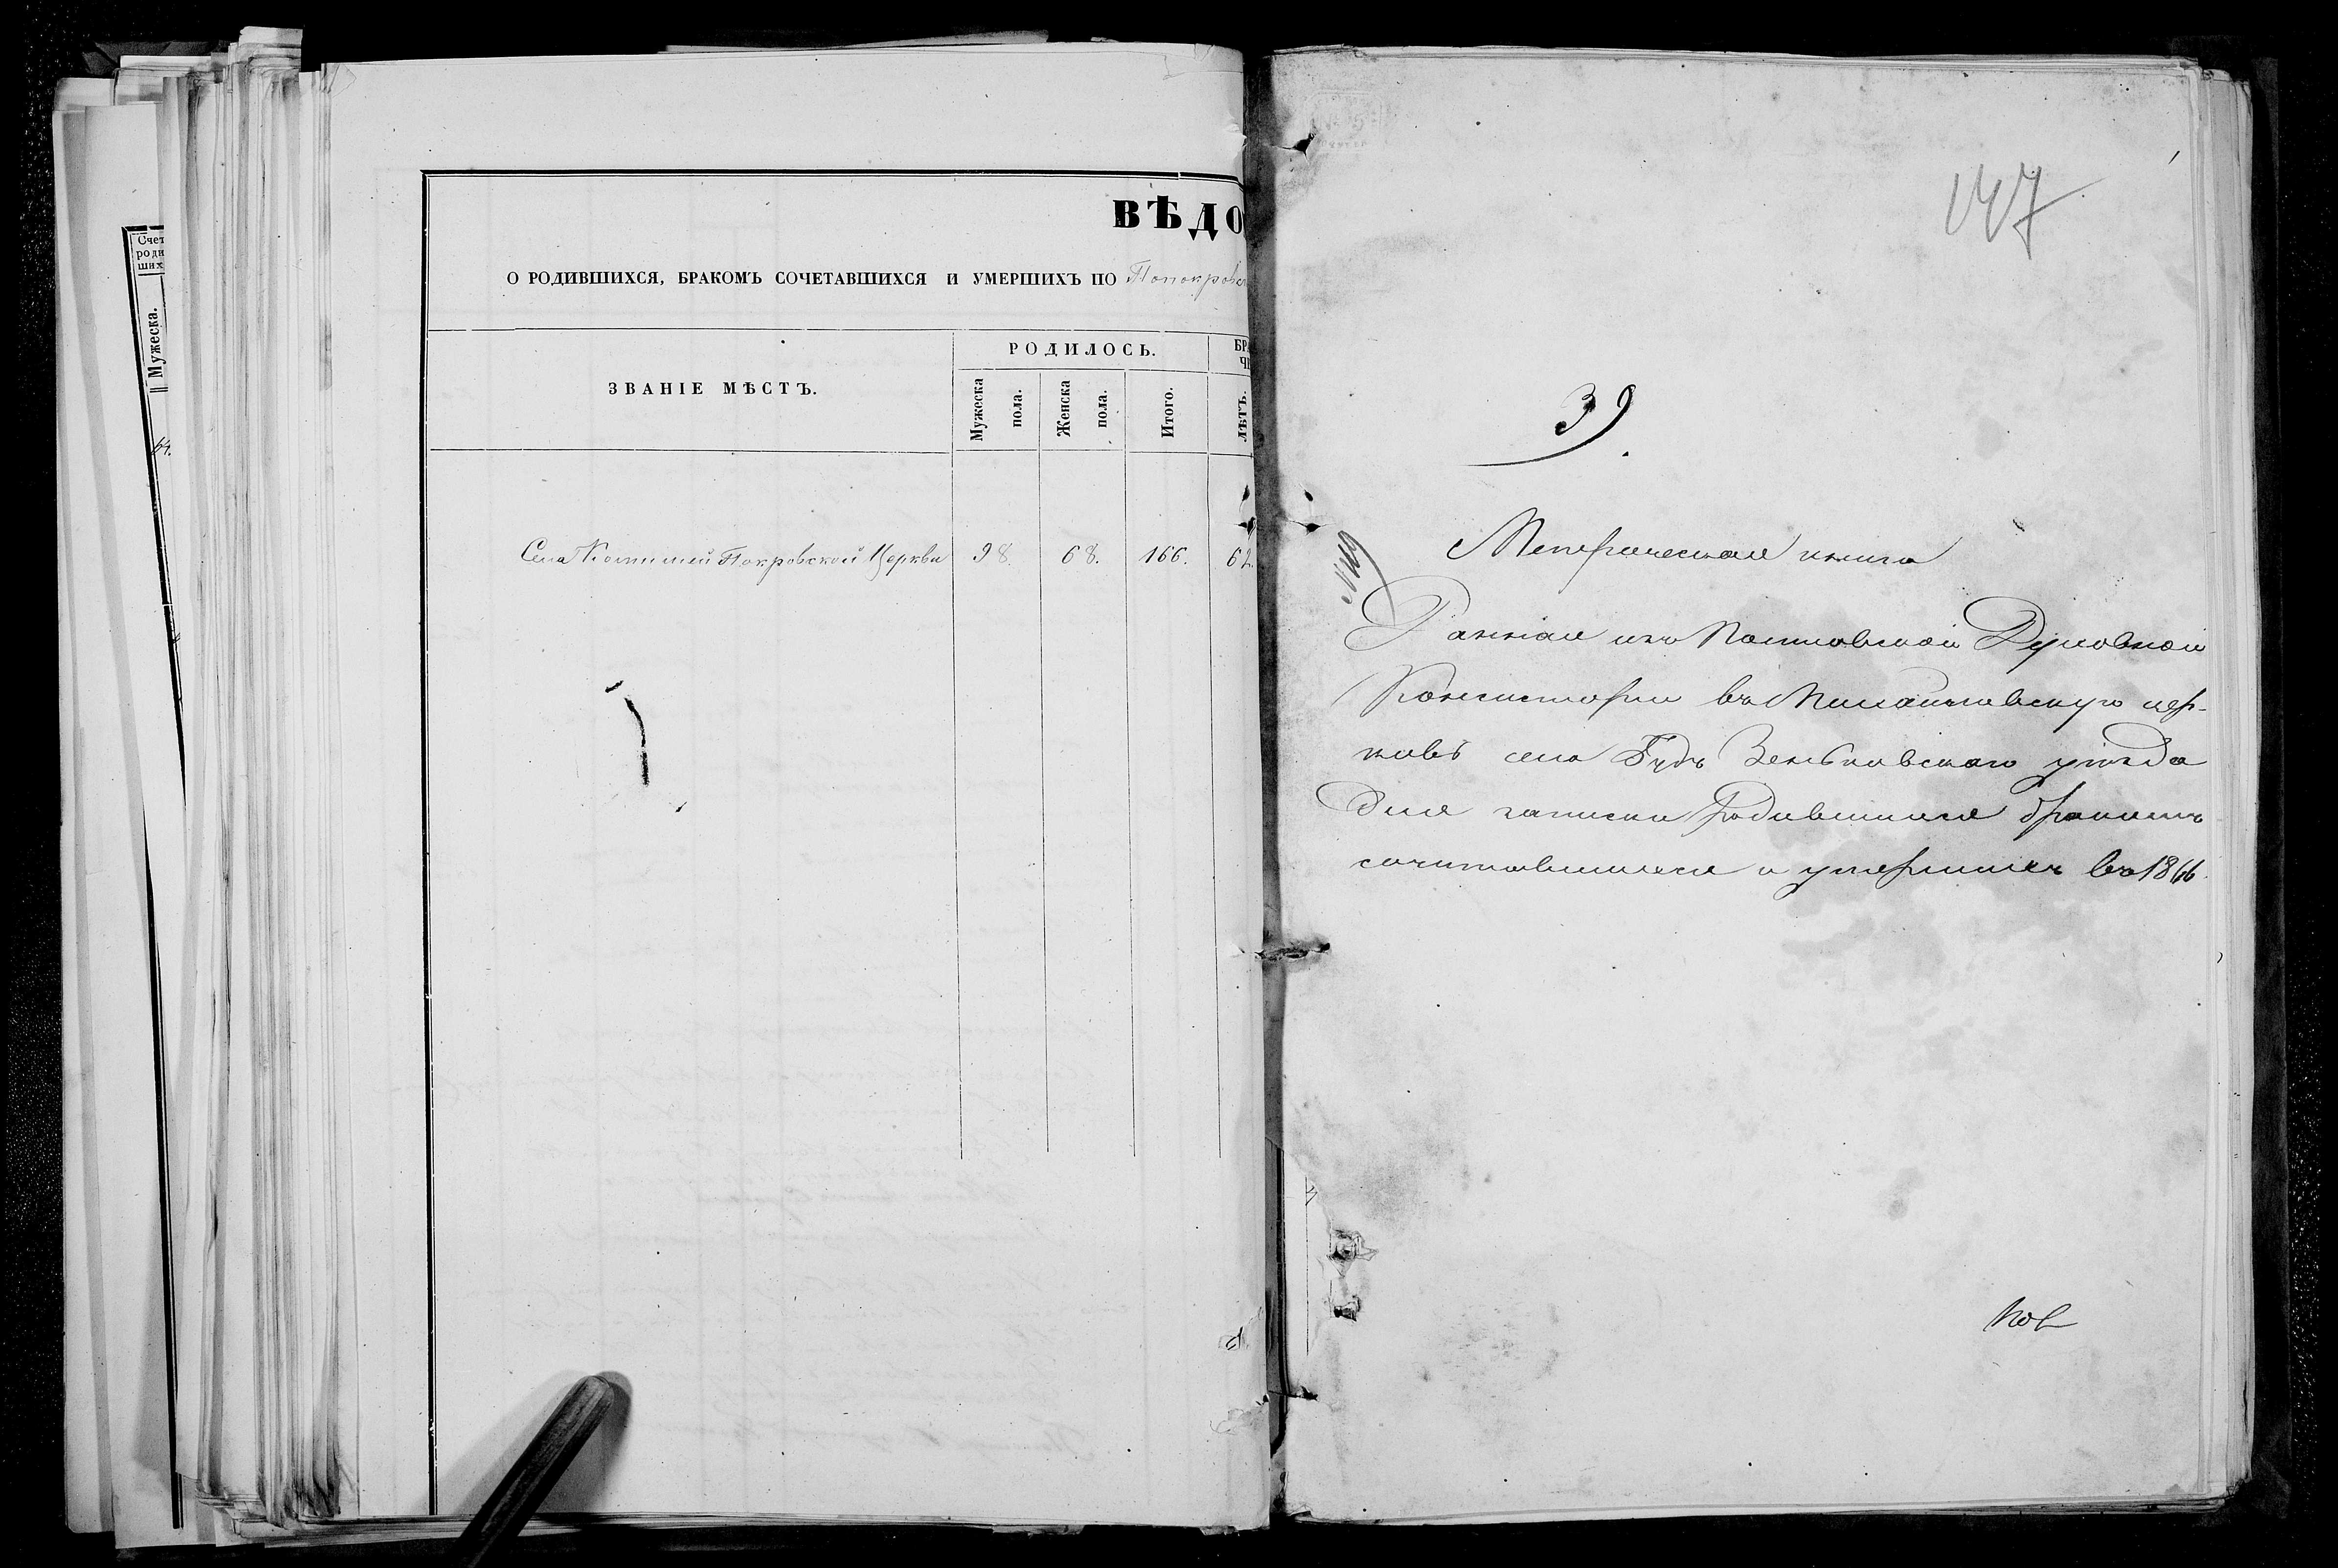 Счет
роди
ших
Мужеска.
ВѢДО
О РОДИВШИХСЯ, БРАКОМЪ СОЧЕТАВШИХСЯ И УМЕРШИХЪ ПО Попокровск
ЗВАНІЕ МѢСТЪ.
РОДИЛОСЬ.
БРА
ЧИ
Мужеска пола.
Женска пола.
Итого.
ЛѢТЪ.
Села Покровской Церкви 98. 68. 166. 62.
147
39.
Метрическая книга
Данная изъ Полтавской Духовной
Консисторіи въ Михайловскую цер-
ковь села Будъ Зеньковскаго уѣзда
для записки Родившихся бракомъ
сочитавшихся и умершихъ въ 1866